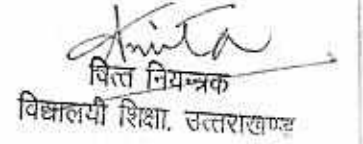 Anita
वित्त नियन्त्रक
विद्यालयी शिक्षा, उत्तराखण्ड